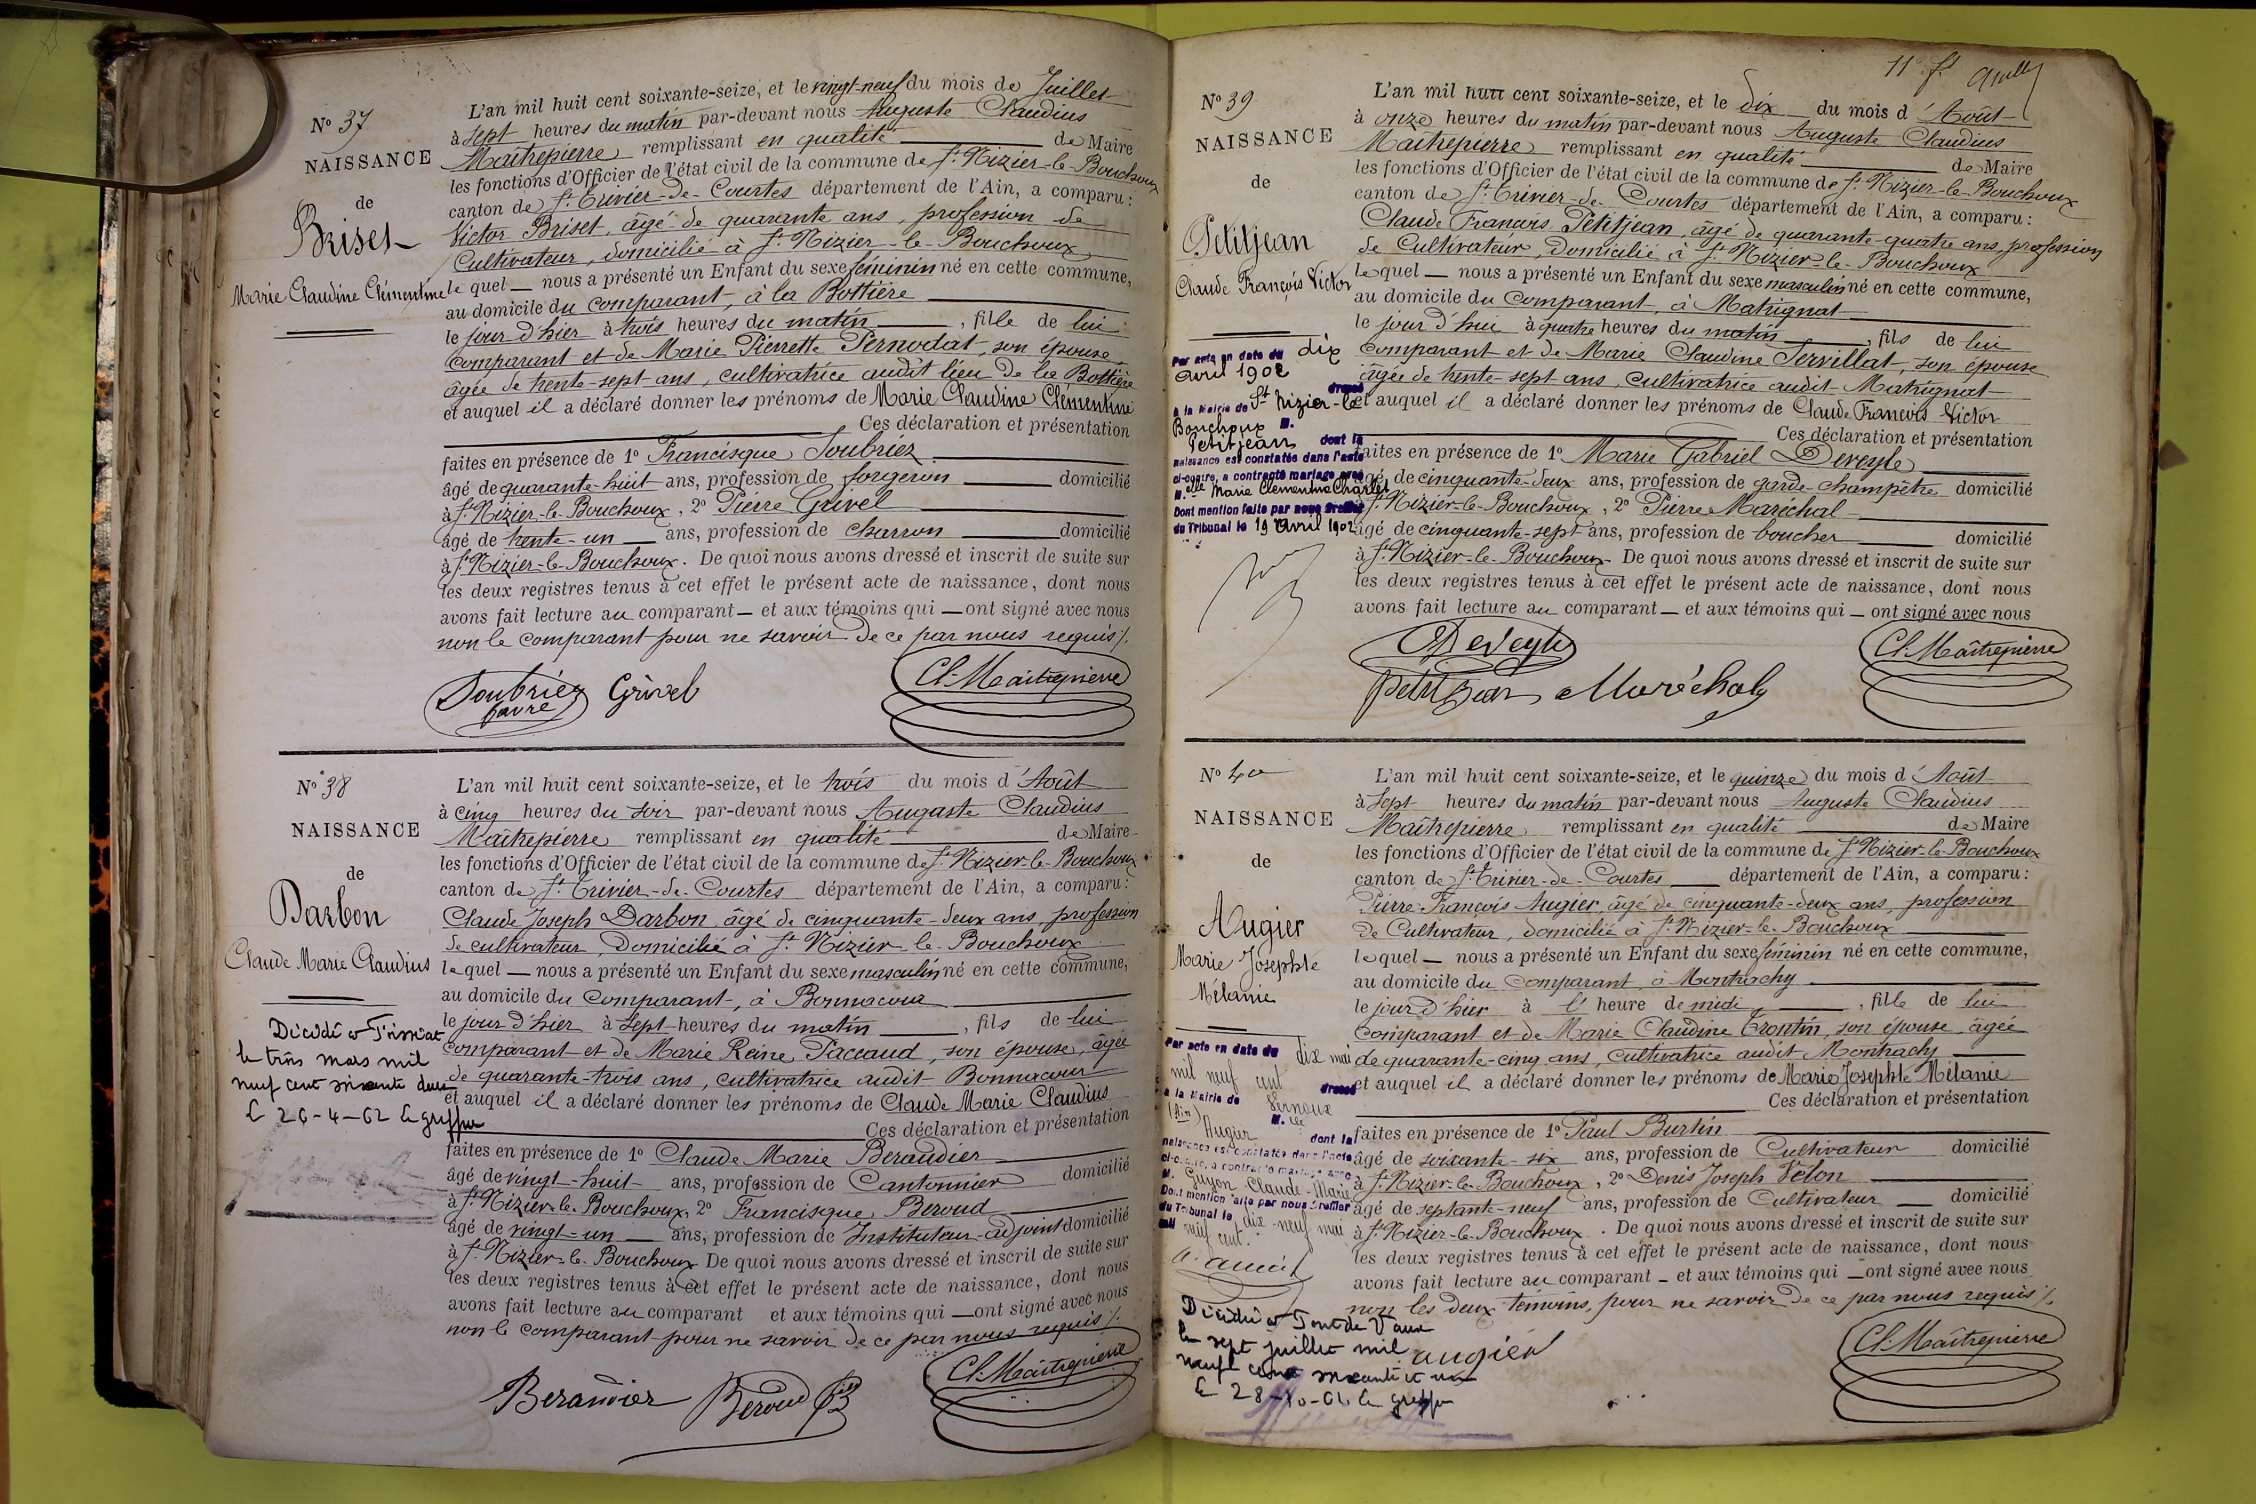 N° 37
NAISSANCE
de
Briset
Marie Claudine Clémentine
L'an mil huit cent soixante-seize, et le vingt-neuf du mois de Juillet
à sept heures du matin par-devant nous Auguste Claudius
Maîtrepierre remplissant en qualité de Maire
les fonctions d'Officier de l'état civil de la commune de St Nizier-le-Bouchoux
canton de St Trivier-de-Courtes département de l'Ain, a comparu :
Victor Briset, âgé de quarante ans, profession de
Cultivateur, domicilié à St Nizier-le-Bouchoux
lequel — nous a présenté un Enfant du sexe féminin né en cette commune,
au domicile du comparant, à la Bottière
le jour d'hier à trois heures du matin, fille de lui
comparant et de Marie Pierrette Pernodat, son épouse,
âgée de trente-sept ans, cultivatrice audit lieu de la Bottière
et auquel il a déclaré donner les prénoms de Marie Claudine Clémentine
Ces déclaration et présentation
faites en présence de 1° Francisque Soubriez
âgé de quarante-huit ans, profession de forgeron domicilié
à St Nizier-le-Bouchoux, 2° Pierre Grivel
âgé de trente-un ans, profession de charron domicilié
à St Nizier-le-Bouchoux. De quoi nous avons dressé et inscrit de suite sur
les deux registres tenus à cet effet le présent acte de naissance, dont nous
avons fait lecture au comparant — et aux témoins qui — ont signé avec nous
non le comparant pour ne savoir de ce par nous requis /.
Soubriez Grivel Cl. Maîtrepierre
N° 38
NAISSANCE
de
Darbon
Claude Marie Claudius
Décédé à
le trois mars mil
neuf cent soixante deux
le 26-4-62 le greffier
L'an mil huit cent soixante-seize, et le trois du mois d'Août
à cinq heures du soir par-devant nous Auguste Claudius
Maîtrepierre remplissant en qualité de Maire
les fonctions d'Officier de l'état civil de la commune de St Nizier-le-Bouchoux
canton de St Trivier-de-Courtes département de l'Ain, a comparu :
Claude Joseph Darbon, âgé de cinquante-deux ans, profession
de cultivateur, domicilié à St Nizier-le-Bouchoux
lequel — nous a présenté un Enfant du sexe masculin né en cette commune,
au domicile du comparant, à Bonnacour
le jour d'hier à sept heures du matin, fils de lui
comparant et de Marie Reine Paccaud, son épouse, âgée
de quarante-trois ans, cultivatrice audit Bonnacour
et auquel il a déclaré donner les prénoms de Claude Marie Claudius
Ces déclaration et présentation
faites en présence de 1° Claude Marie Beraudier
âgé de vingt-huit ans, profession de Cantonnier domicilié
à St Nizier-le-Bouchoux, 2° Francisque Beroud
âgé de vingt-un ans, profession de Instituteur-adjoint domicilié
à St Nizier-le-Bouchoux De quoi nous avons dressé et inscrit de suite sur
les deux registres tenus à cet effet le présent acte de naissance, dont nous
avons fait lecture au comparant et aux témoins qui — ont signé avec nous
non le comparant pour ne savoir de ce par nous requis /.
Beraudier Beroud Cl. Maîtrepierre
11e ft
N° 39
NAISSANCE
de
Petitjean
Claude François Victor
Par acte en date du dix
avril 1902
dressé
à la Mairie de St Nizier-le
Bouchoux M.
Petitjean dont la
naissance est constatée dans l'acte
ci-contre, a contracté mariage avec
M.elle Marie Clémentine Charlet
Dont mention faite par nous Greffier
du Tribunal le 19 Avril 1902
L'an mil huit cent soixante-seize, et le dix du mois d'Août
à onze heures du matin par-devant nous Auguste Claudius
Maîtrepierre remplissant en qualité de Maire
les fonctions d'Officier de l'état civil de la commune de St Nizier-le-Bouchoux
canton de St Trivier-de-Courtes département de l'Ain, a comparu :
Claude François Petitjean, âgé de quarante-quatre ans, profession
de Cultivateur, domicilié à St Nizier-le-Bouchoux
lequel — nous a présenté un Enfant du sexe masculin né en cette commune,
au domicile du comparant, à Matrignat
le jour d'hui à quatre heures du matin, fils de lui
comparant et de Marie Claudine Servillat, son épouse
âgée de trente-sept ans, cultivatrice audit Matrignat
et auquel il a déclaré donner les prénoms de Claude François Victor
Ces déclaration et présentation
faites en présence de 1° Marie Gabriel Deveyle
âgé de cinquante-deux ans, profession de garde-champêtre domicilié
à St Nizier-le-Bouchoux, 2° Pierre Maréchal
âgé de cinquante-sept ans, profession de boucher domicilié
à St Nizier-le-Bouchoux De quoi nous avons dressé et inscrit de suite sur
les deux registres tenus à cet effet le présent acte de naissance, dont nous
avons fait lecture au comparant — et aux témoins qui — ont signé avec nous
Deveyle Cl. Maîtrepierre
Petitjean Maréchal
N° 40
NAISSANCE
de
Augier
Marie Josephte
Mélanie
Par acte en date du dix mai
mil neuf cent
dressé
à la Mairie de Vernoux
(Ain) M.elle
Augier dont la
naissance est constatée dans l'acte
ci-contre, a contracté mariage avec
M. Guyon Claude-Marie
Dont mention faite par nous Greffier
du Tribunal le dix-neuf mai
mil neuf cent.
Décédée à Pont de Vaux
le sept juillet mil
neuf cent soixante et un
le 28-10-61 le greffier
L'an mil huit cent soixante-seize, et le quinze du mois d'Août
à sept heures du matin par-devant nous Auguste Claudius
Maîtrepierre remplissant en qualité de Maire
les fonctions d'Officier de l'état civil de la commune de St Nizier-le-Bouchoux
canton de St Trivier-de-Courtes département de l'Ain, a comparu :
Pierre François Augier, âgé de cinquante-deux ans, profession
de Cultivateur, domicilié à St Nizier-le-Bouchoux
lequel — nous a présenté un Enfant du sexe féminin né en cette commune,
au domicile du comparant, à Montrachy
le jour d'hier à l'heure de midi, fille de lui
comparant et de Marie Claudine Trontin, son épouse âgée
de quarante-cinq ans, cultivatrice audit Montrachy
et auquel il a déclaré donner les prénoms de Marie Josephte Mélanie
Ces déclaration et présentation
faites en présence de 1° Paul Burtin
âgé de soixante-six ans, profession de Cultivateur domicilié
à St Nizier-le-Bouchoux, 2° Denis Joseph Velon
âgé de septante-neuf ans, profession de Cultivateur domicilié
à St Nizier-le-Bouchoux. De quoi nous avons dressé et inscrit de suite sur
les deux registres tenus à cet effet le présent acte de naissance, dont nous
avons fait lecture au comparant — et aux témoins qui — ont signé avec nous
non les deux témoins, pour ne savoir de ce par nous requis /.
augier Cl. Maîtrepierre